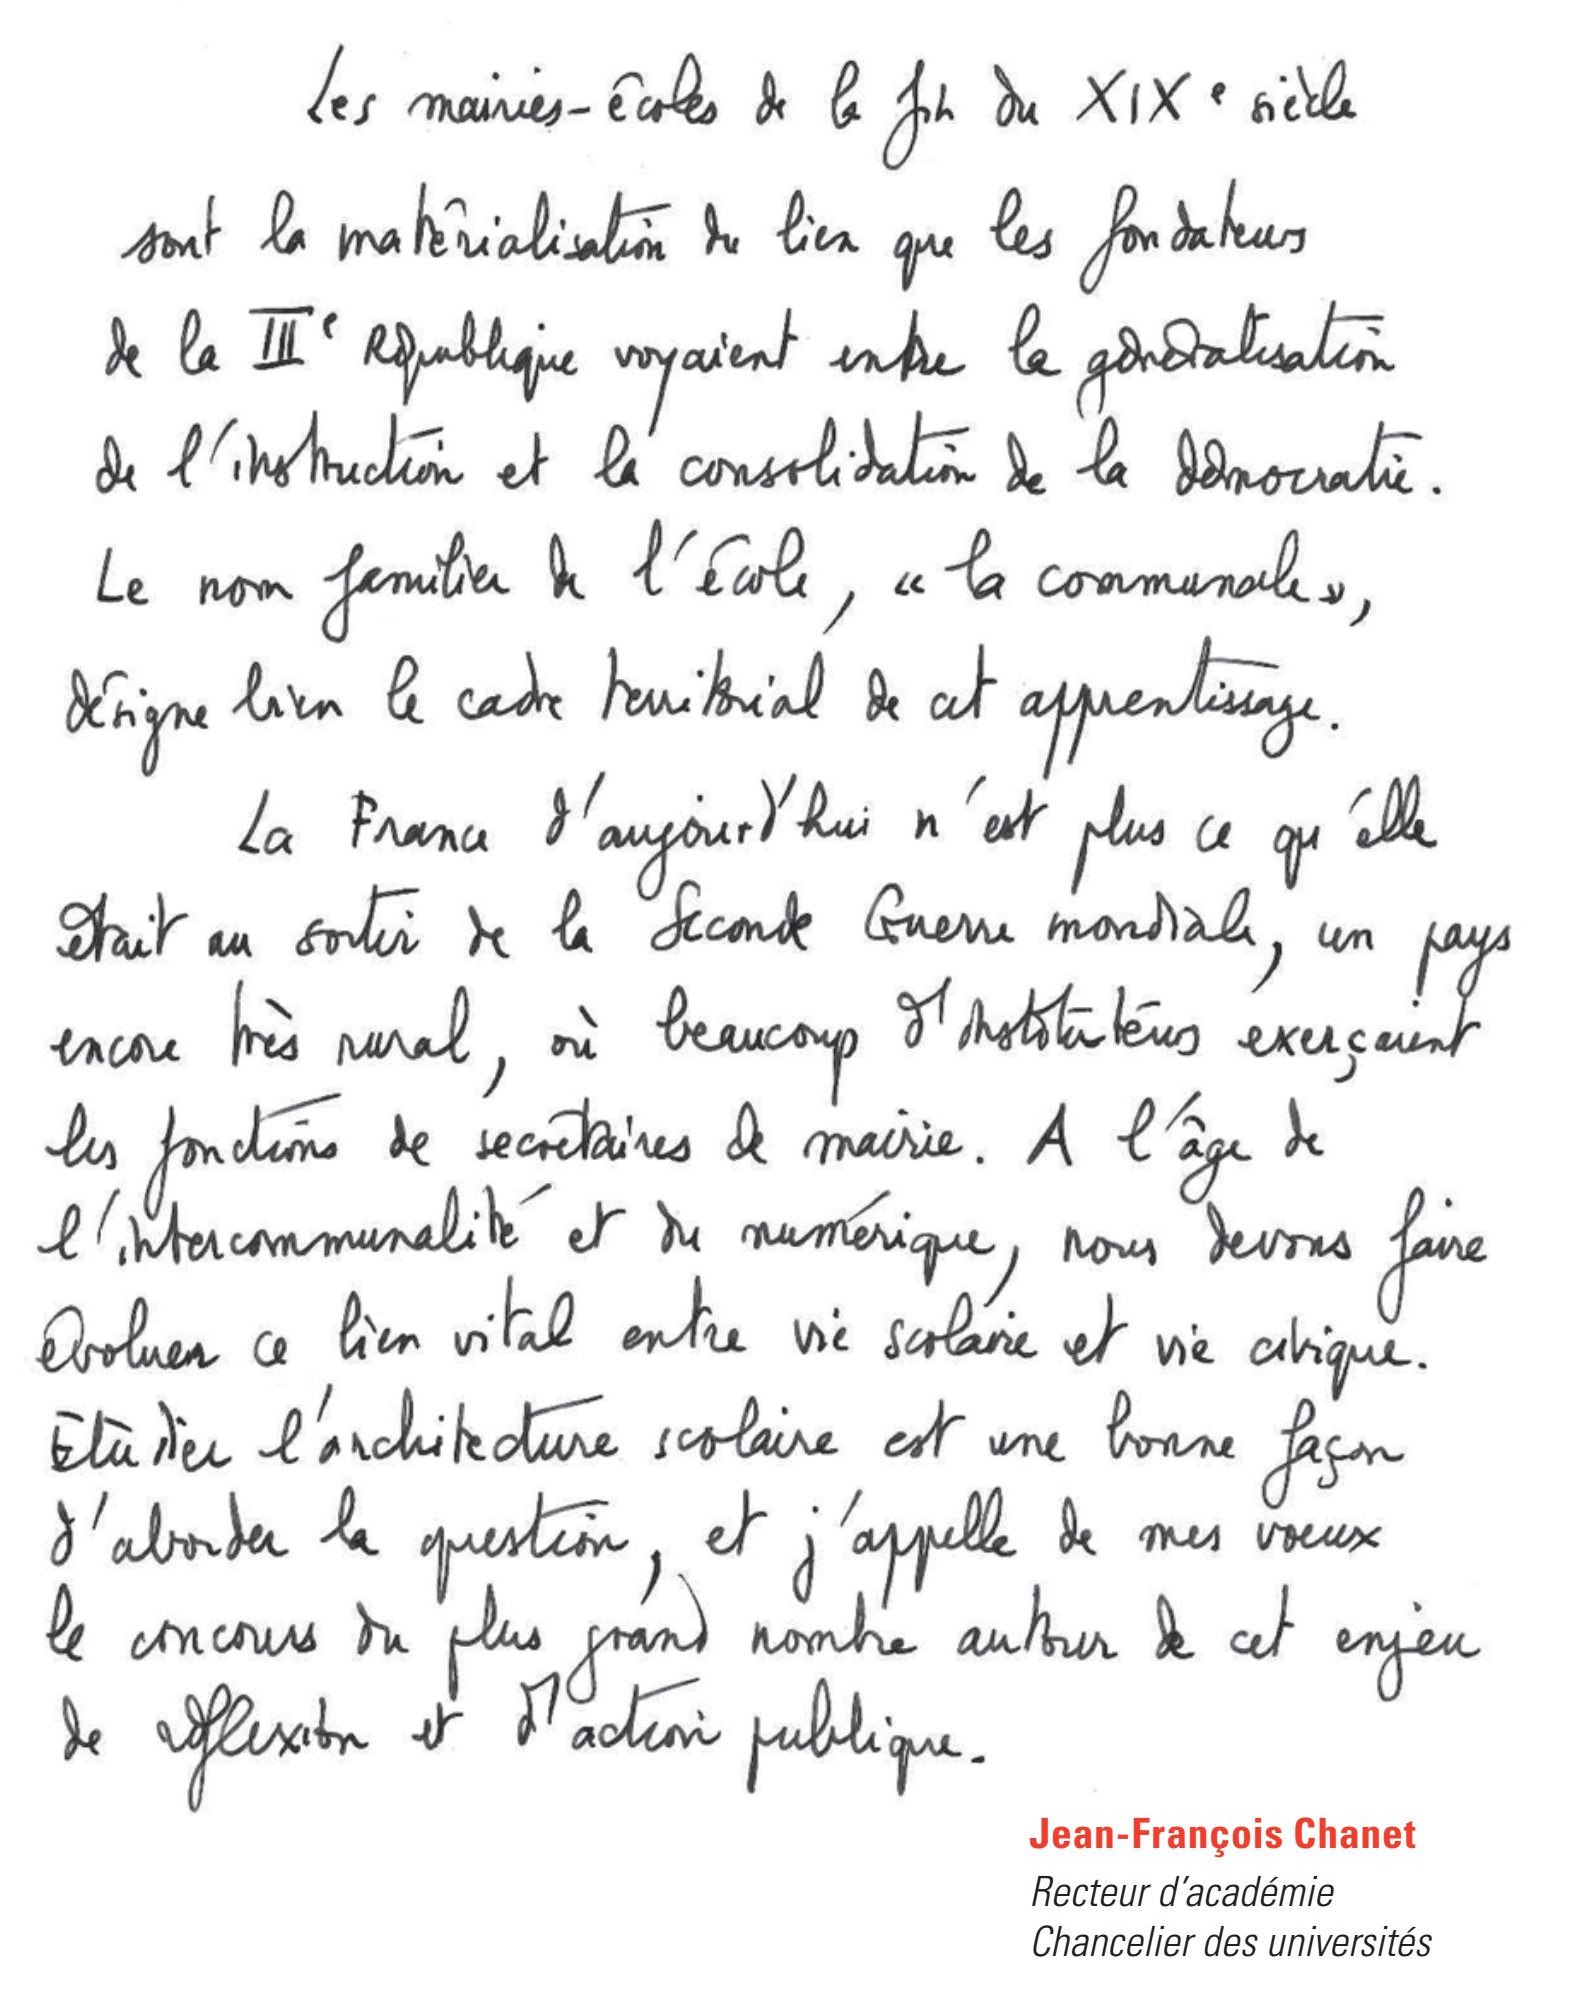 Les mairies-écoles de la fin du XIXe siècle
sont la matérialisation du lien que les fondateurs
de la IIIe République voyaient entre la généralisation
de l'instruction et la consolidation de la démocratie.
Le nom familier de l'école, « la communale »,
désigne bien le cadre territorial de cet apprentissage.
La France d'aujourd'hui n'est plus ce qu'elle
était au sortir de la Seconde Guerre mondiale, un pays
encore très rural, où beaucoup d'instituteurs exerçaient
les fonctions de secrétaires de mairie. A l'âge de
l'intercommunalité et du numérique, nous devons faire
évoluer ce lien vital entre vie scolaire et vie civique.
Etudier l'architecture scolaire est une bonne façon
d'aborder la question, et j'appelle de mes voeux
le concours du plus grand nombre autour de cet enjeu
de réflexion et d'action publique.
Jean-François Chanet
Recteur d'académie
Chancelier des universités